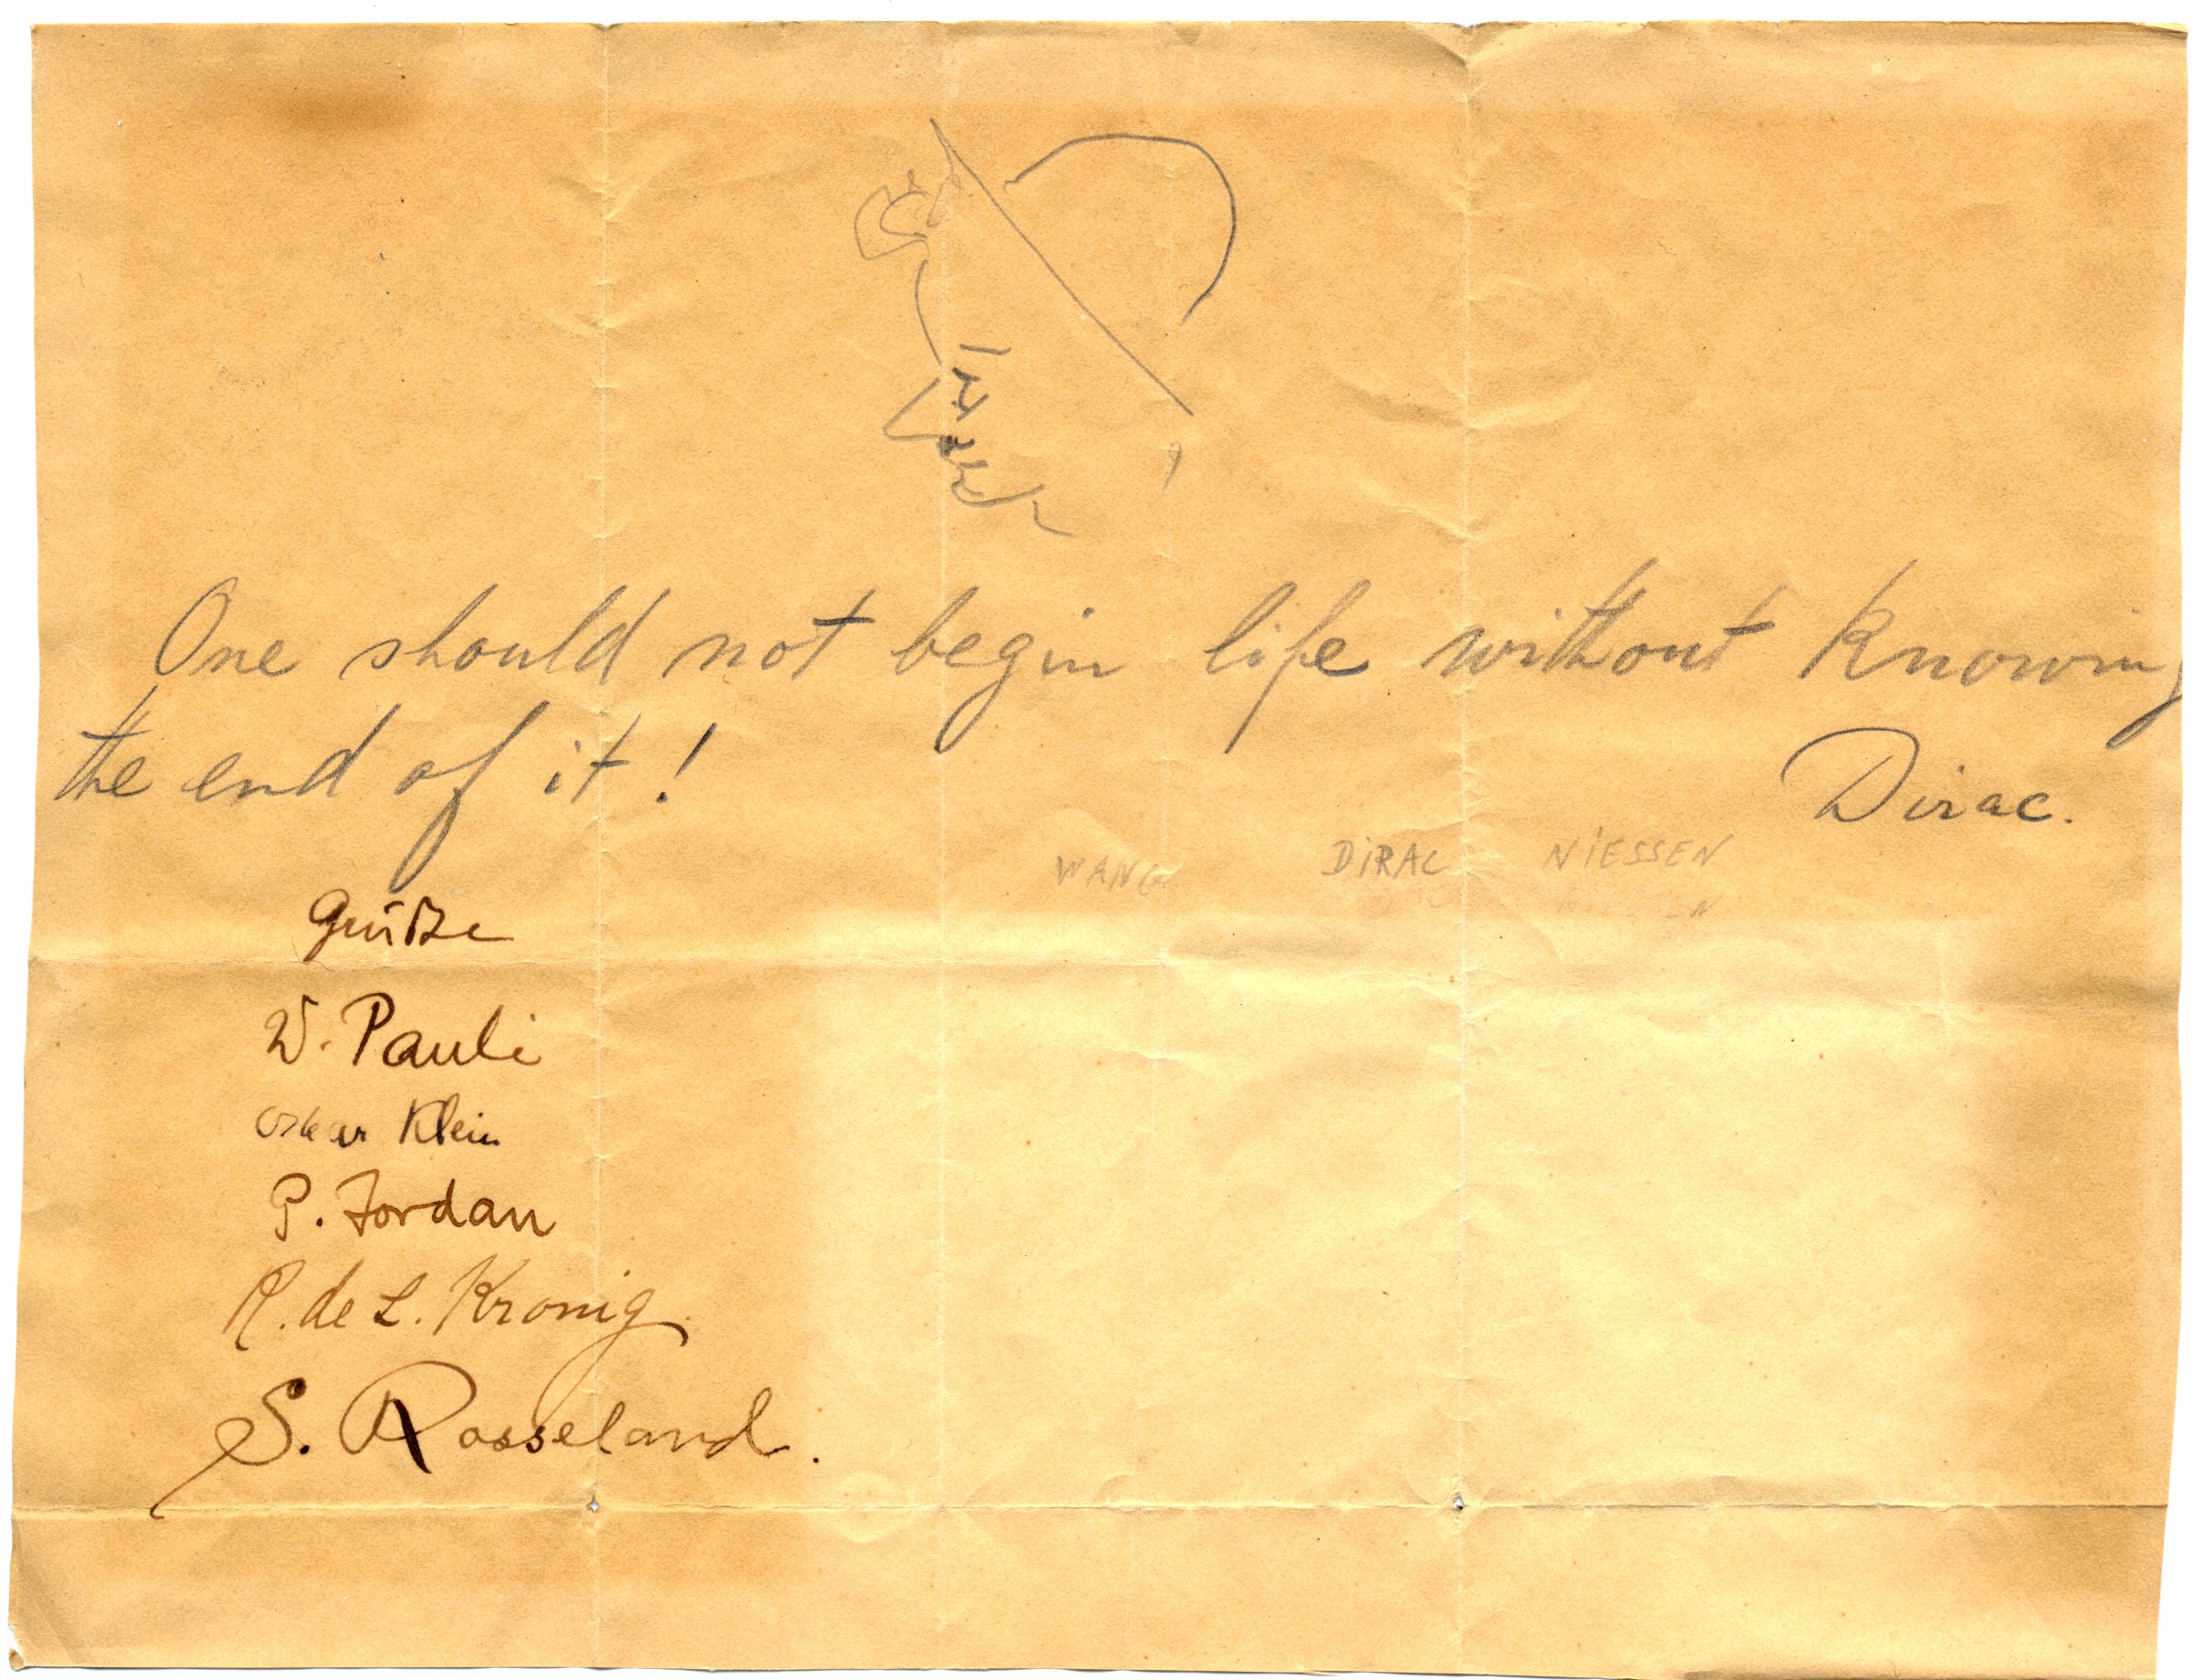 One should not begin life without knowing
the end of it!
Dirac.
WANG DIRAC NIESSEN
Grüße
W. Pauli
Oskar Klein
P. Jordan
R. de L. Kronig
S. Rosseland.